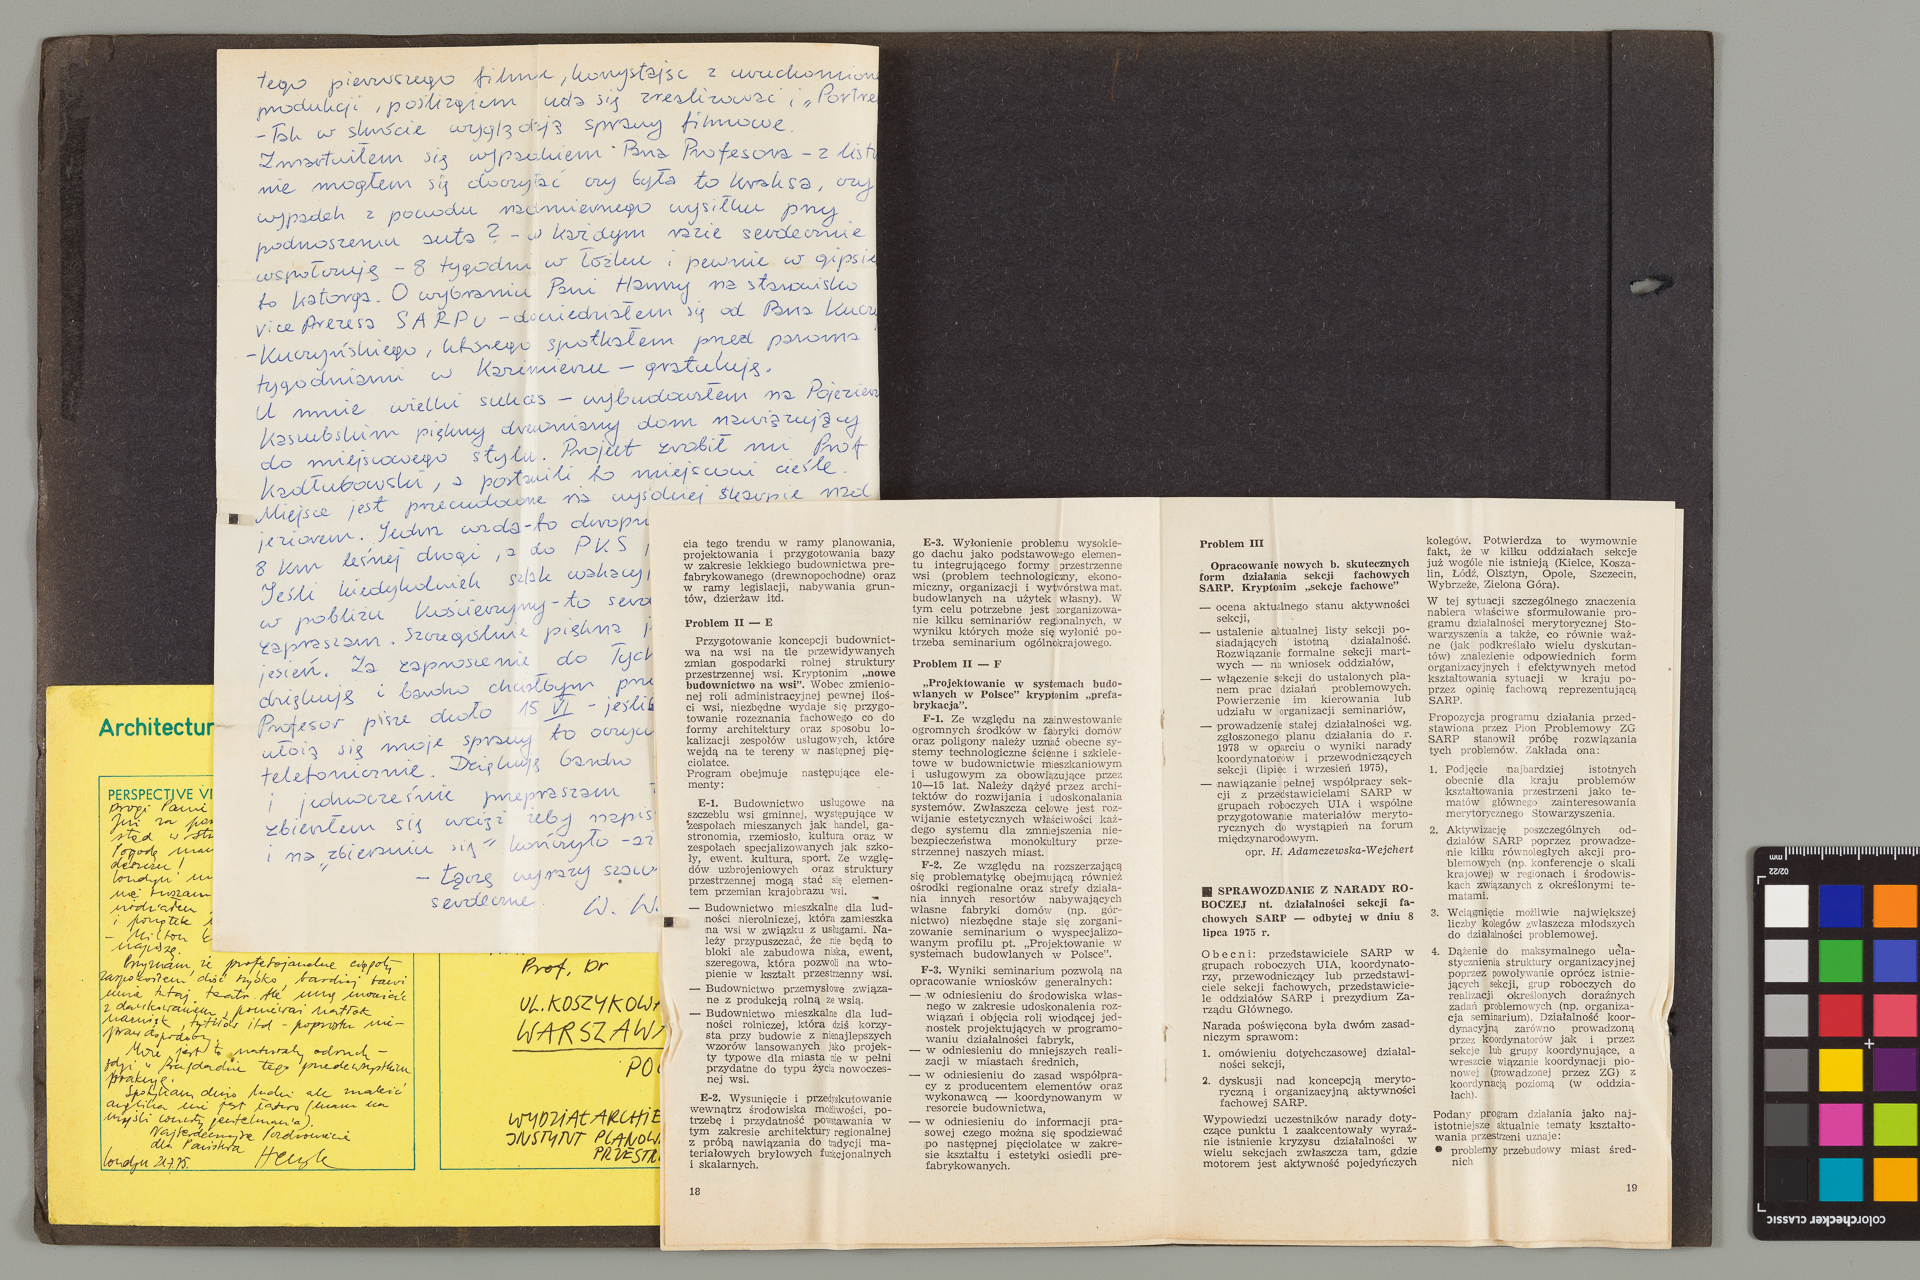 tego pierwszego filmu, korzystając z uruchomione
produkcji, poślizgiem uda się zrealizować i „Portre
– Tak w skrócie wyglądają sprawy filmowe.
Zmartwiłem się wypadkiem Pana Profesora – z listu
nie mogłem się doczytać czy była to kraksa, czy
wypadek z powodu nadmiernego wysiłku przy
podnoszeniu auta? – w każdym razie serdecznie
współczuję – 8 tygodni w łóżku i pewnie w gipsie
to katorga. O wybraniu Pani Hanny na stanowisko
vice Prezesa SARPu – dowiedziałem się od Pana Kuczy
– Kuczyńskiego, którego spotkałem przed paroma
tygodniami w Kazimierzu – gratuluję.
U mnie wielki sukces – wybudowałem na Pojezierz
Kaszubskim piękny drewniany dom nawiązujący
do miejscowego stylu. Projekt zrobił mi Prof
Kadłubowski, a postawili to miejscowi cieśle.
Miejsce jest przecudowne na wysokiej skarpie nad
jeziorem. Jedna wada – to dwopu
8 km leśnej drogi, a do PKS
Jeśli kiedykolwiek szlak wakacyj
w pobliżu Kościerzyny – to serd
zapraszam. Szczególnie piękna j
jesień. Za zaproszenie do Tych
dziękuję i bardzo chciałbym prz
Profesor pisze około 15 VI – jeślib
ułożą się moje sprawy to oczyw
telefonicznie. Dziękuję bardzo
i jednocześnie przepraszam
zbierałem się wciąż żeby napis
i na „zbieraniu się" kończyło – aż
– Łączę wyrazy szacu
serdeczne. W. W.
Architectur
PERSPECTIVE VI
Drogi Pani
Już za par
stąd w str
Pogodę mam
deszczu!
Londyn!
i początek
– Milton
napiszę.
Przyznam, że profesjonalne ciągoty
zaspokoiłem dość szybko, bardziej bawi
mnie tutaj teatr. Ale
z dowcipkowaniem, ponieważ natłok
nazwisk, tytułów itd – poprostu nie-
prawdopodobny.
Może jest to naturalny odruch –
pragnę.
Spotykam dużo ludzi ale znaleźć
anglika nie jest łatwo (mam na
myśli conajmniej jentelmana).
Najserdeczniejsze Pozdrowienia
dla Państwa
Londyn 21.7.75. Henryk
Prof. Dr
UL. KOSZYKOWA
WARSZAWA
PO
WYDZIAŁ ARCHIE
INSTYNT PLANOW
PRZESTR
cia tego trendu w ramy planowania,
projektowania i przygotowania bazy
w zakresie lekkiego budownictwa pre-
fabrykowanego (drewnopochodne) oraz
w ramy legislacji, nabywania grun-
tów, dzierżaw itd.
Problem II — E
Przygotowanie koncepcji budownict-
wa na wsi na tle przewidywanych
zmian gospodarki rolnej struktury
przestrzennej wsi. Kryptonim „nowe
budownictwo na wsi". Wobec zmienio-
nej roli administracyjnej pewnej iloś-
ci wsi, niezbędne wydaje się przygo-
towanie rozeznania fachowego co do
formy architektury oraz sposobu lo-
kalizacji zespołów usługowych, które
wejdą na te tereny w następnej pię-
ciolatce.
Program obejmuje następujące ele-
menty:
E-1. Budownictwo usługowe na
szczeblu wsi gminnej, występujące w
zespołach mieszanych jak handel, ga-
stronomia, rzemiosło, kultura oraz w
zespołach specjalizowanych jak szko-
ły, ewent. kultura, sport. Ze wzglę-
dów uzbrojeniowych oraz struktury
przestrzennej mogą stać się elemen-
tem przemian krajobrazu wsi.
— Budownictwo mieszkalne dla lud-
ności nierolniczej, która zamieszka
na wsi w związku z usługami. Na-
leży przypuszczać, że nie będą to
bloki ale zabudowa niska, ewent,
szeregowa, która pozwoli na wto-
pienie w kształt przestrzenny wsi.
— Budownictwo przemysłowe związa-
ne z produkcją rolną ze wsią.
— Budownictwo mieszkalne dla lud-
ności rolniczej, która dziś korzy-
sta przy budowie z nienajlepszych
wzorów lansowanych jako projek-
ty typowe dla miasta nie w pełni
przydatne do typu życia nowoczes-
nej wsi.
E-2. Wysunięcie i przedyskutowanie
wewnątrz środowiska możliwości, po-
trzebę i przydatność powstawania w
tym zakresie architektury regionalnej
z próbą nawiązania do tradycji ma-
teriałowych bryłowych funkcjonalnych
i skalarnych.
18
E-3. Wyłonienie problemu wysokie-
go dachu jako podstawowego elemen-
tu integrującego formy przestrzenne
wsi (problem technologiczny, ekono-
miczny, organizacji i wytwórstwa mat.
budowlanych na użytek własny). W
tym celu potrzebne jest zorganizowa-
nie kilku seminariów regionalnych, w
wyniku których może się wyłonić po-
trzeba seminarium ogólnokrajowego.
Problem II — F
„Projektowanie w systemach budo-
wlanych w Polsce" kryptonim „prefa-
brykacja".
F-1. Ze względu na zainwestowanie
ogromnych środków w fabryki domów
oraz poligony należy uznać obecne sy-
stemy technologiczne ścienne i szkiele-
towe w budownictwie mieszkaniowym
i usługowym za obowiązujące przez
10—15 lat. Należy dążyć przez archi-
tektów do rozwijania i udoskonalania
systemów. Zwłaszcza celowe jest roz-
wijanie estetycznych właściwości każ-
dego systemu dla zmniejszenia nie-
bezpieczeństwa monokultury prze-
strzennej naszych miast.
F-2. Ze względu na rozszerzającą
się problematykę obejmującą również
ośrodki regionalne oraz strefy działa-
nia innych resortów nabywających
własne fabryki domów (np. gór-
nictwo) niezbędne staje się zorgani-
zowanie seminarium o wyspecjalizo-
wanym profilu pt. „Projektowanie w
systemach budowlanych w Polsce".
F-3. Wyniki seminarium pozwolą na
opracowanie wniosków generalnych:
— w odniesieniu do środowiska włas-
nego w zakresie udoskonalenia roz-
wiązań i objęcia roli wiodącej jed-
nostek projektujących w programo-
waniu działalności fabryk,
— w odniesieniu do mniejszych reali-
zacji w miastach średnich,
— w odniesieniu do zasad współpra-
cy z producentem elementów oraz
wykonawcą — koordynowanym w
resorcie budownictwa,
— w odniesieniu do informacji pra-
sowej czego można się spodziewać
po następnej pięciolatce w zakre-
sie kształtu i estetyki osiedli pre-
fabrykowanych.
Problem III
Opracowanie nowych b. skutecznych
form działania sekcji fachowych
SARP. Kryptonim „sekcje fachowe"
— ocena aktualnego stanu aktywności
sekcji,
— ustalenie aktualnej listy sekcji po-
siadających istotną działalność.
Rozwiązanie formalne sekcji mart-
wych — na wniosek oddziałów,
— włączenie sekcji do ustalonych pla-
nem prac działań problemowych.
Powierzenie im kierowania lub
udziału w organizacji seminariów,
— prowadzenie stałej działalności wg.
zgłoszonego planu działania do r.
1978 w oparciu o wyniki narady
koordynatorów i przewodniczących
sekcji (lipiec i wrzesień 1975),
— nawiązanie pełnej współpracy sek-
cji z przedstawicielami SARP w
grupach roboczych UIA i wspólne
przygotowanie materiałów meryto-
rycznych do wystąpień na forum
międzynarodowym.
opr. H. Adamczewska-Wejchert
■ SPRAWOZDANIE Z NARADY RO-
BOCZEJ nt. działalności sekcji fa-
chowych SARP — odbytej w dniu 8
lipca 1975 r.
Obecni: przedstawiciele SARP w
grupach roboczych UIA, koordynato-
rzy, przewodniczący lub przedstawi-
ciele sekcji fachowych, przedstawicie-
le oddziałów SARP i prezydium Za-
rządu Głównego.
Narada poświęcona była dwóm zasad-
niczym sprawom:
1. omówieniu dotychczasowej działal-
ności sekcji,
2. dyskusji nad koncepcją meryto-
ryczną i organizacyjną aktywności
fachowej SARP.
Wypowiedzi uczestników narady doty-
czące punktu 1 zaakcentowały wyraź-
nie istnienie kryzysu działalności w
wielu sekcjach zwłaszcza tam, gdzie
motorem jest aktywność pojedyńczych
kolegów. Potwierdza to wymownie
fakt, że w kilku oddziałach sekcje
już wogóle nie istnieją (Kielce, Kosza-
lin, Łódź, Olsztyn, Opole, Szczecin,
Wybrzeże, Zielona Góra).
W tej sytuacji szczególnego znaczenia
nabiera właściwe sformułowanie pro-
gramu działalności merytorycznej Sto-
warzyszenia a także, co równie waż-
ne (jak podkreślało wielu dyskutan-
tów) znalezienie odpowiednich form
organizacyjnych i efektywnych metod
kształtowania sytuacji w kraju po-
przez opinię fachową reprezentującą
SARP.
Propozycja programu działania przed-
stawiona przez Pion Problemowy ZG
SARP stanowił próbę rozwiązania
tych problemów. Zakłada ona:
1. Podjęcie najbardziej istotnych
obecnie dla kraju problemów
kształtowania przestrzeni jako te-
matów głównego zainteresowania
merytorycznego Stowarzyszenia.
2. Aktywizację poszczególnych od-
działów SARP poprzez prowadze-
nie kilku równoległych akcji pro-
blemowych (np. konferencje o skali
krajowej) w regionach i środowis-
kach związanych z określonymi te-
matami.
3. Wciągnięcie możliwie największej
liczby kolegów zwłaszcza młodszych
do działalności problemowej.
4. Dążenie do maksymalnego uela-
stycznienia struktury organizacyjnej
poprzez powoływanie oprócz istnie-
jących sekcji, grup roboczych do
realizacji określonych doraźnych
zadań problemowych (np. organiza-
cja seminarium). Działalność koor-
dynacyjną zarówno prowadzoną
przez koordynatorów jak i przez
sekcje lub grupy koordynujące, a
wreszcie wiązanie koordynacji pio-
nowej (prowadzonej przez ZG) z
koordynacją poziomą (w oddzia-
łach).
Podany program działania jako naj-
istotniejsze aktualnie tematy kształto-
wania przestrzeni uznaje:
● problemy przebudowy miast śred-
nich
19
mm
02/22
colorchecker CLASSIC